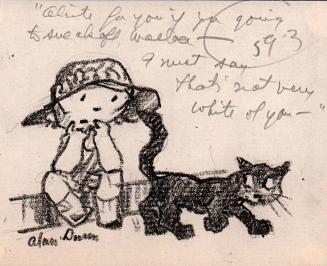 for you if you going
to sneak off, Wallace —
59-3
I must say
that's not very
white of you — "
Alan Dunn